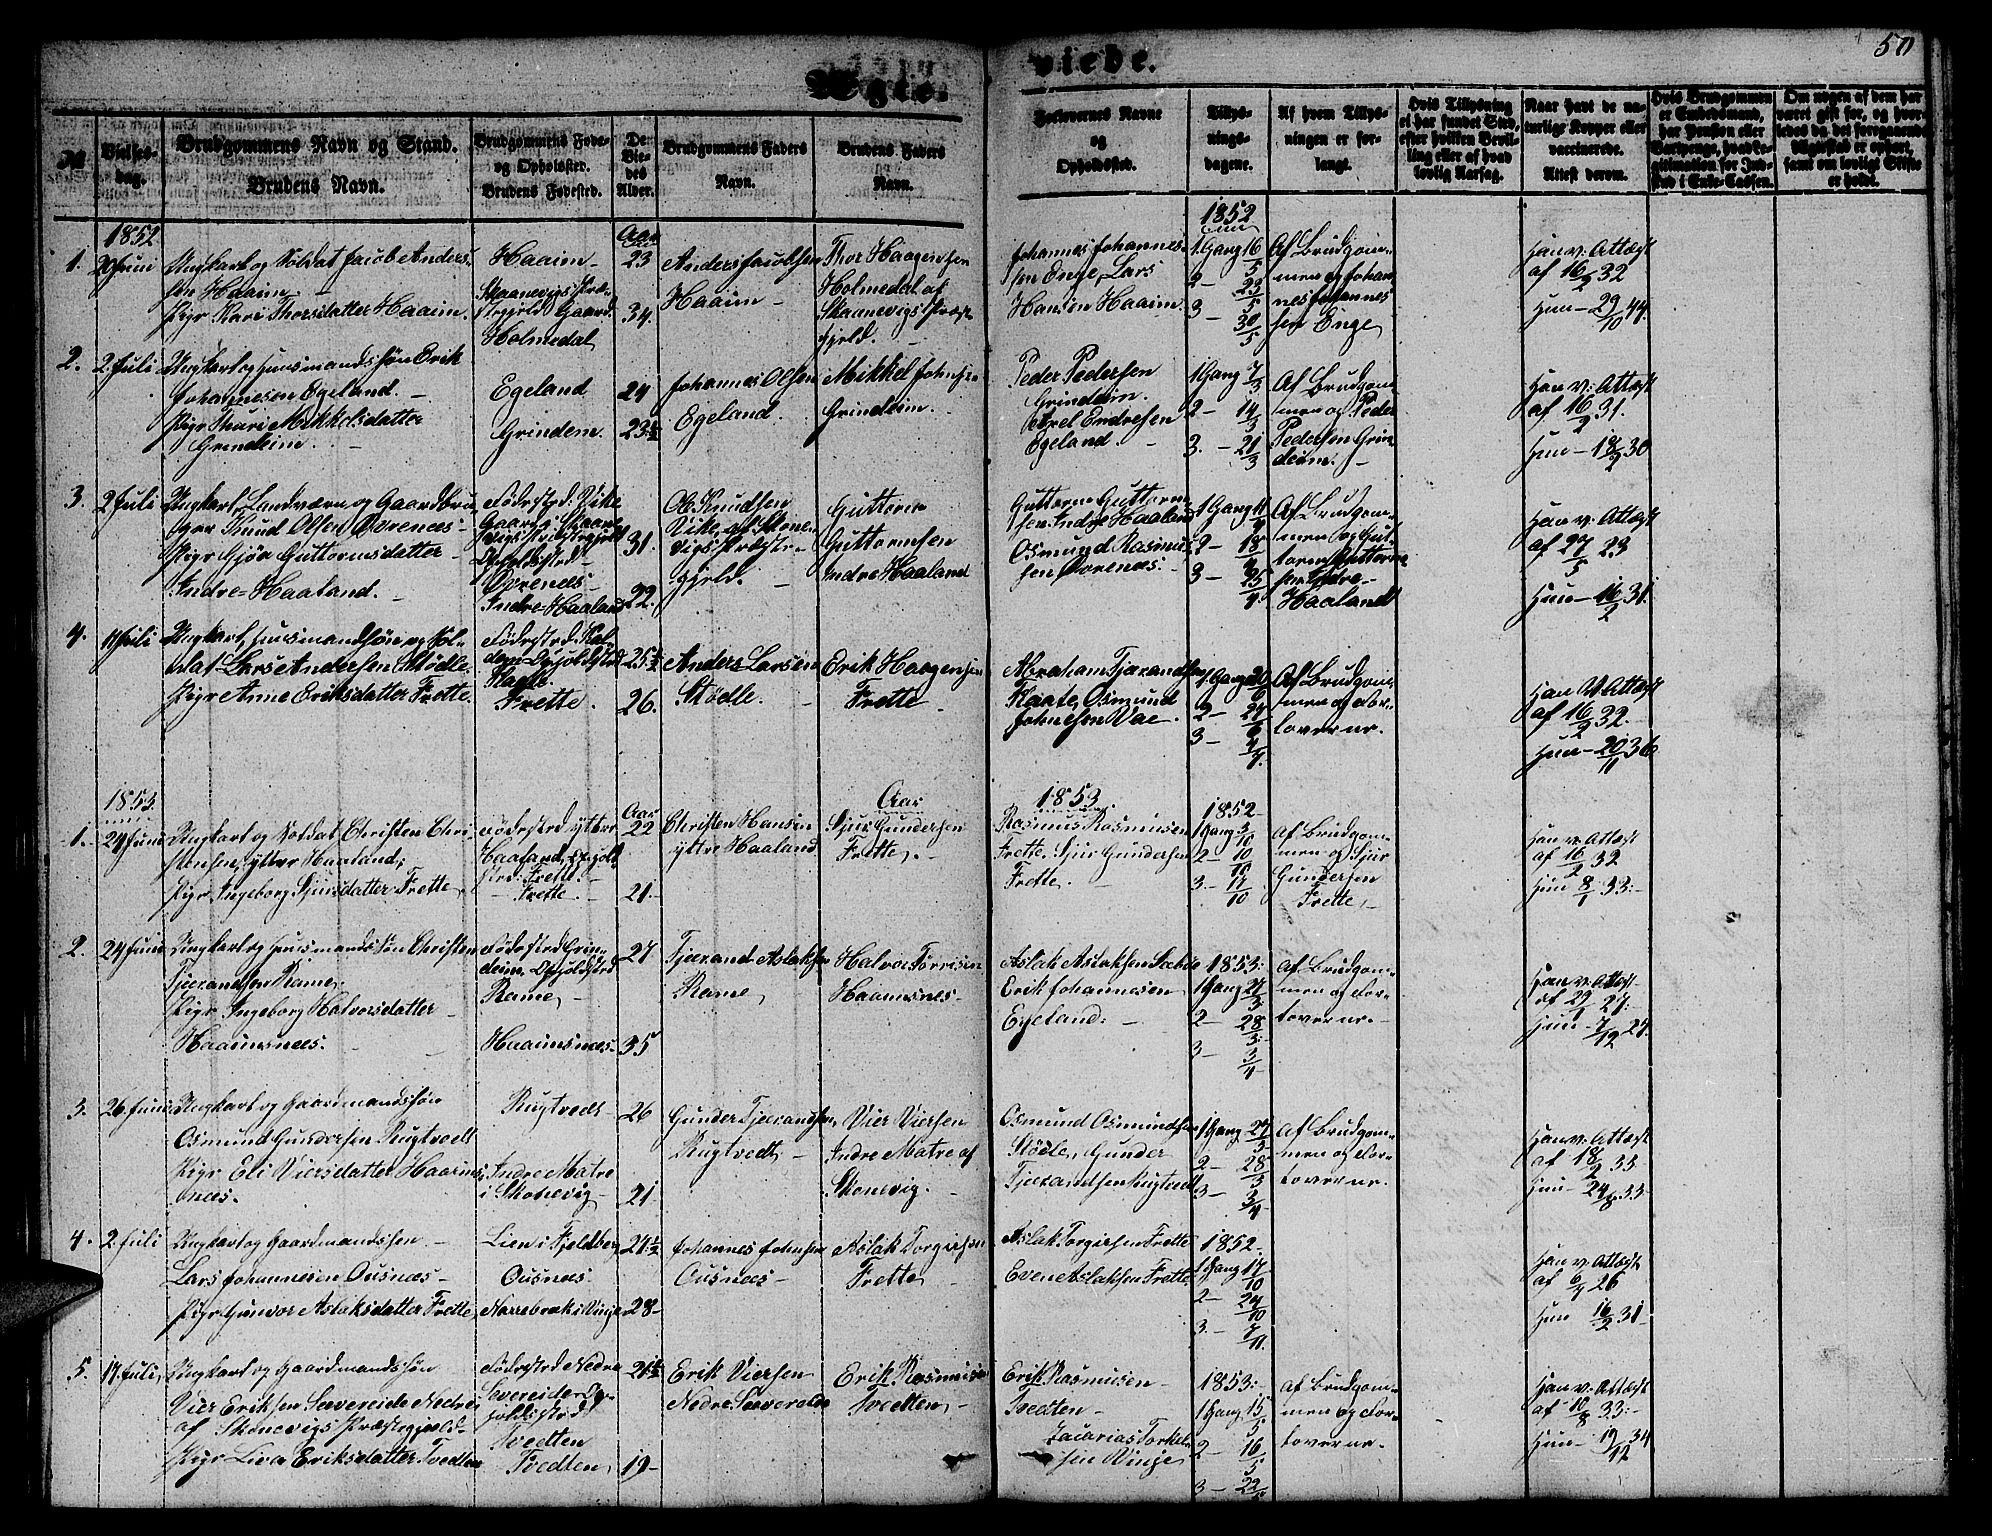 Ægte-
viede.
50
No
Vielses-
dag.
Brudgommens Navn og Stand.
Brudens Navn.
Brudgommens Føde-
og Opholdssted.
Brudens Fødested.
De
Vie-
des
Alder.
Brudgommens Faders
Navn.
Brudens Faders
Navn.
Forlovernes Navne
og
Opholdssted.
Tillys-
nings-
dagene.
Af hvem Tillys-
ningen er for-
langt.
Hvis Tillysning
ei har fundet Sted,
efter hvilken Bevil-
ling eller af hvad
lovlig Aarsag.
Naar havt de na-
turlige Kopper eller
vaccinerede.
Attest derom.
Hvis Brudgommen
er Embedsmand,
har Pension eller
Vartpenge, hvad Le-
gitimation for Ind-
skud i Enke-Cassen.
Om nogen af dem har
været gift før, og hvor-
ledes da det foregaaende
Ægteskab er ophørt,
samt om lovligt Skifte
er holdt.
1852
1. 20 Juni
Ungkarl og Soldat Jacob Anders-
sen Haaim.
Pige Kari Thorsdatter Haaim.
Haaim
Skaanevigs Præ-
stegjeld Gaard.
Holmedal
Aar
23
34.
Anders Jacobsen
Haaim
Thor Haagensen
Holmedal af
Skaanevigs Præste-
gjeld.
Johannes Johannes-
sen Enge, Lars
Hansen Haaim
1852
1 Gang 16/5
2 - 23/5
3 - 30/5
Af Brudgom-
men og Johan-
nes Johannes-
sen Enge
Han v: Attest
af 16/2 32
Hun - 29/10 44.
2. 2 Juli
Ungkarl og Huusmandssøn Erik
Johannesen Egeland.
Pige Thuri Mikkelsdatter
Grindeim.
Egeland
Grindem.
24
23½
Johannes Olsen
Egeland
Mikkel Johnsen
Grindeim.
Peder Pedersen
Grindeim.
Endresen
Egeland.
1 Gang 7/3
2 - 14/3
3. - 21/3
Af Brudgom-
men og Peder
Pedersen Grin-
deim.
Han v: Attest
af 16/2 31.
Hun - 18/2 30
3. 2 Juli
Ungkarl, Landværn og Gaardbru-
ger Knud Olsen Øvrenæs
Pige Gjør Guttormsdatter
Indre-Haaland.
Fødested: Vike
Gaard i Skaane-
vigs Præstegjeld
Opholdssted
Øvrenæs
Indre-Haaland
31.
22.
Ole Knudsen
Vike af Skone-
vigs Præste-
gjeld.
Guttorm
Guttormsen
Indre Haaland
Guttorm Guttorm-
sen Indre Haaland
Osmund Rasmus-
sen Øvrenæs.
1 Gang 11/4
2 - 18/4
3 - 25/4
Af Brudgom-
men og Gut-
torm Guttorm-
sen Indre
Haaland
Han v: Attest
af 27/5 23
Hun - 16/2 31.
4. 11 Juli
Ungkarl, Huusmandssøn og Sol-
dat Lars Andersen Stødle.
Pige Anne Eriksdatter Frette.
Frette.
25½
26.
Anders Larsen
Stødle.
Erik Haagensen
Frette
Abraham Tjerandsen
Kaate, Osmund
Johnesen Vae.
1 Gang 20/6
2 - 27/6
3 - 4/7
Af Brudgom-
men og For-
loverne.
Han v. Attest
af 16/2 32.
Hun - 20/11 36
1853.
Aar
1853.
1. 24 Juni
Ungkarl og Soldat Christen Chri-
stensen, ytter Haaland;
Pige Ingeborg Sjursdatter Frette
Fødested ytter
Haaland, Ophold-
sted: Frette.
Frette
Aar
22
21.
Christen Hansen
ytre Haaland
Sjur Gundersen
Frette.
Rasmus Rasmusen
Frette. Sjur Gundersen
Frette.
1852
1 Gang 3/10
2 - 10/10
3 - 17/10
Af Brudgom-
men og Sjur
Gundersen
Frette
Han v: Attest
af 16/2 32
Hun 8/1 33:
2. 24 Juni
Ungkarl og Huusmandssøn Christen
Tjerandsen Rame,
Pige Ingeborg Halvorsdatter
Haaimsnæs.
Fødested Grin-
deim, Opholdsted
Rame,
Haaimsnæs.
27
35
Tjerand Aslaksen
Rame,
Halvor Torrisen
Haaimsnes
Aslak Aslaksen Sæbøe
Erik Johannesen
Egeland:
1853:
1 Gang 27/3
2 - 28/3
3 - 3/4
Af Brudgom-
men og For-
loverne.
Han v: Attest
af 29/1 27:
Hun - 7/12 27.
3. 26 Juni
Ungkarl og Gaardmandssøn
Osmund Gundersen Rugtvedt
Pige Eli Viersdatter Haaims-
næs.
Rugtvedt
Indre Matre
i Skonevig
26
21
Gunder Tjerandsen
Rugtvedt
Vier Viersen
Indre Matre af
Skonevig.
Osmund Osmundsen
Stødle, Gunder
Tjerandsen Rugtvedt
1 Gang 27/3
2 - 28/3
3 - 3/4
Af Brudgom-
men og For-
loverne.
Han v: Attest
af 18/2 33
Hun - 24/8 33
4. 2. Juli
Ungkarl og Gaardmandssøn
Lars Johannesen Ousnæs
Pige Gunvor Aslaksdatter Frette
Lien i Fjeldberg
Ousnæs
i Vinje
27½
28
Johannes Johnsen
Ousnæs
Aslak Torgiersen
Frette
Aslak Torgiersen Frette
Even Aslaksen Frette
1852.
1 Gang 17/10
2 - 24/10
3 - 7/11
Han v: Attest
af 6/7 26
Hun 16/2 31
5. 17 Juli
Ungkarl og Gaardmandssøn
Vier Eriksen Sævereide Nedre
af Skonevigs Præstegjeld
Pige Liva Eriksdatter Tvedten
Fødested Nedre
Sævereide Op-
holdssted
Tvedten
Tvedten
21½
19
Erik Viersen
Nedre Sævereide
Erik Rasmusen
Tvedten
Erik Rasmusen
Tvedten
Zacarias Torkel-
sen Vinje
1853:
1 Gang 15/5
2 - 16/5
3 - 22/5
Af Brudgom-
men og For-
loverne.
Han v: Attest
af 10/8 33:
Hun - 34